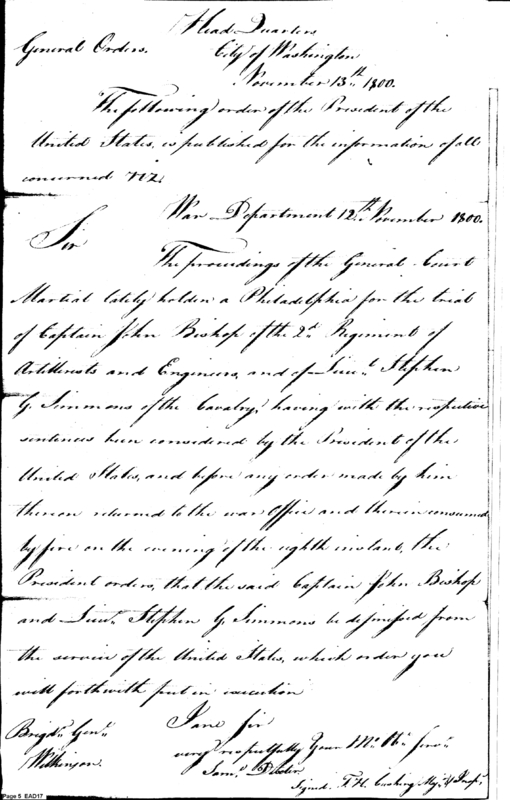 Head Quarters
General Orders. City of Washington
November 13th 1800.
The following order of the President of the
United States, is published for the information of all
concerned viz.
War Department 12th November 1800.
Sir
The proceedings of the General Court
Martial lately holden a Philadelphia for the trial
of Captain John Bishop of the 2d Regiment of
Artillerists and Engineers, and of Lieut. Stephen
G. Simmons of the Cavalry, having with the respective
sentences been considered by the President of the
United States, and before any order made by him
thereon returned to the war office and therein consumed
by fire on the evening of the eighth instant, the
President orders, that the said Captain John Bishop
and Lieut. Stephen G. Simmons be dismissed from
the service of the United States, which order you
will forthwith put in execution
Brigdr. Genl. I am Sir
Wilkinson. very respectfully Your Mo. Ob. Serv.
Saml. Dexter
Signed. T. H. Cushing Maj. & Insp.
Page 5 EAD17